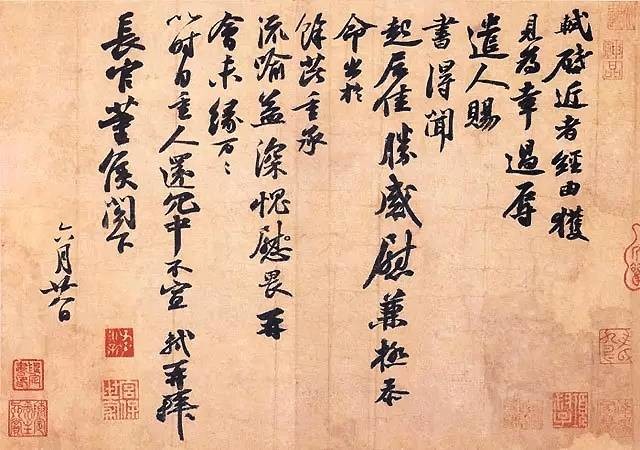 軾啟近者經由獲
見為幸過辱
遣人賜
書得聞
起居佳勝感慰兼極忝
命出於
餘芘重承
流喻益深愧慰畏再
會未緣万万
以時自重人還冗中不宣軾再拜
長官董侯閣下
六月廿八日